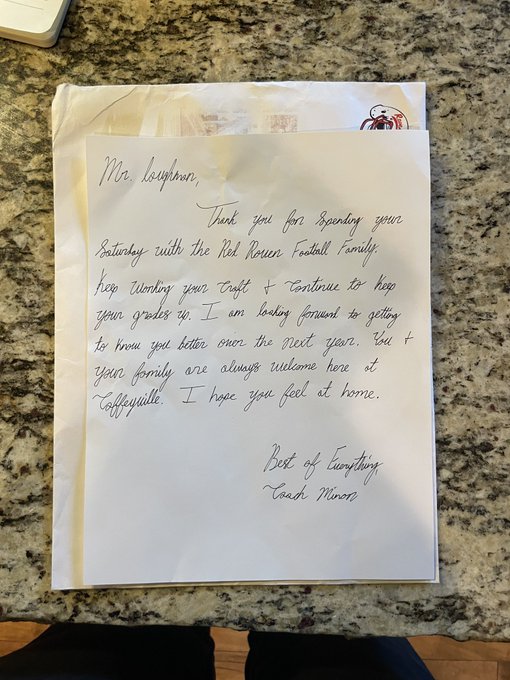 Mr. Loughman,
Thank you for Spending your
Saturday with the Red Raven Football Family.
Keep Working your Craft & Continue to Keep
your grades up. I am looking forward to getting
to know you better over the next year. You &
your family are always welcome here at
Coffeyville. I hope you feel at home.
Best of Everything,
Coach Minor